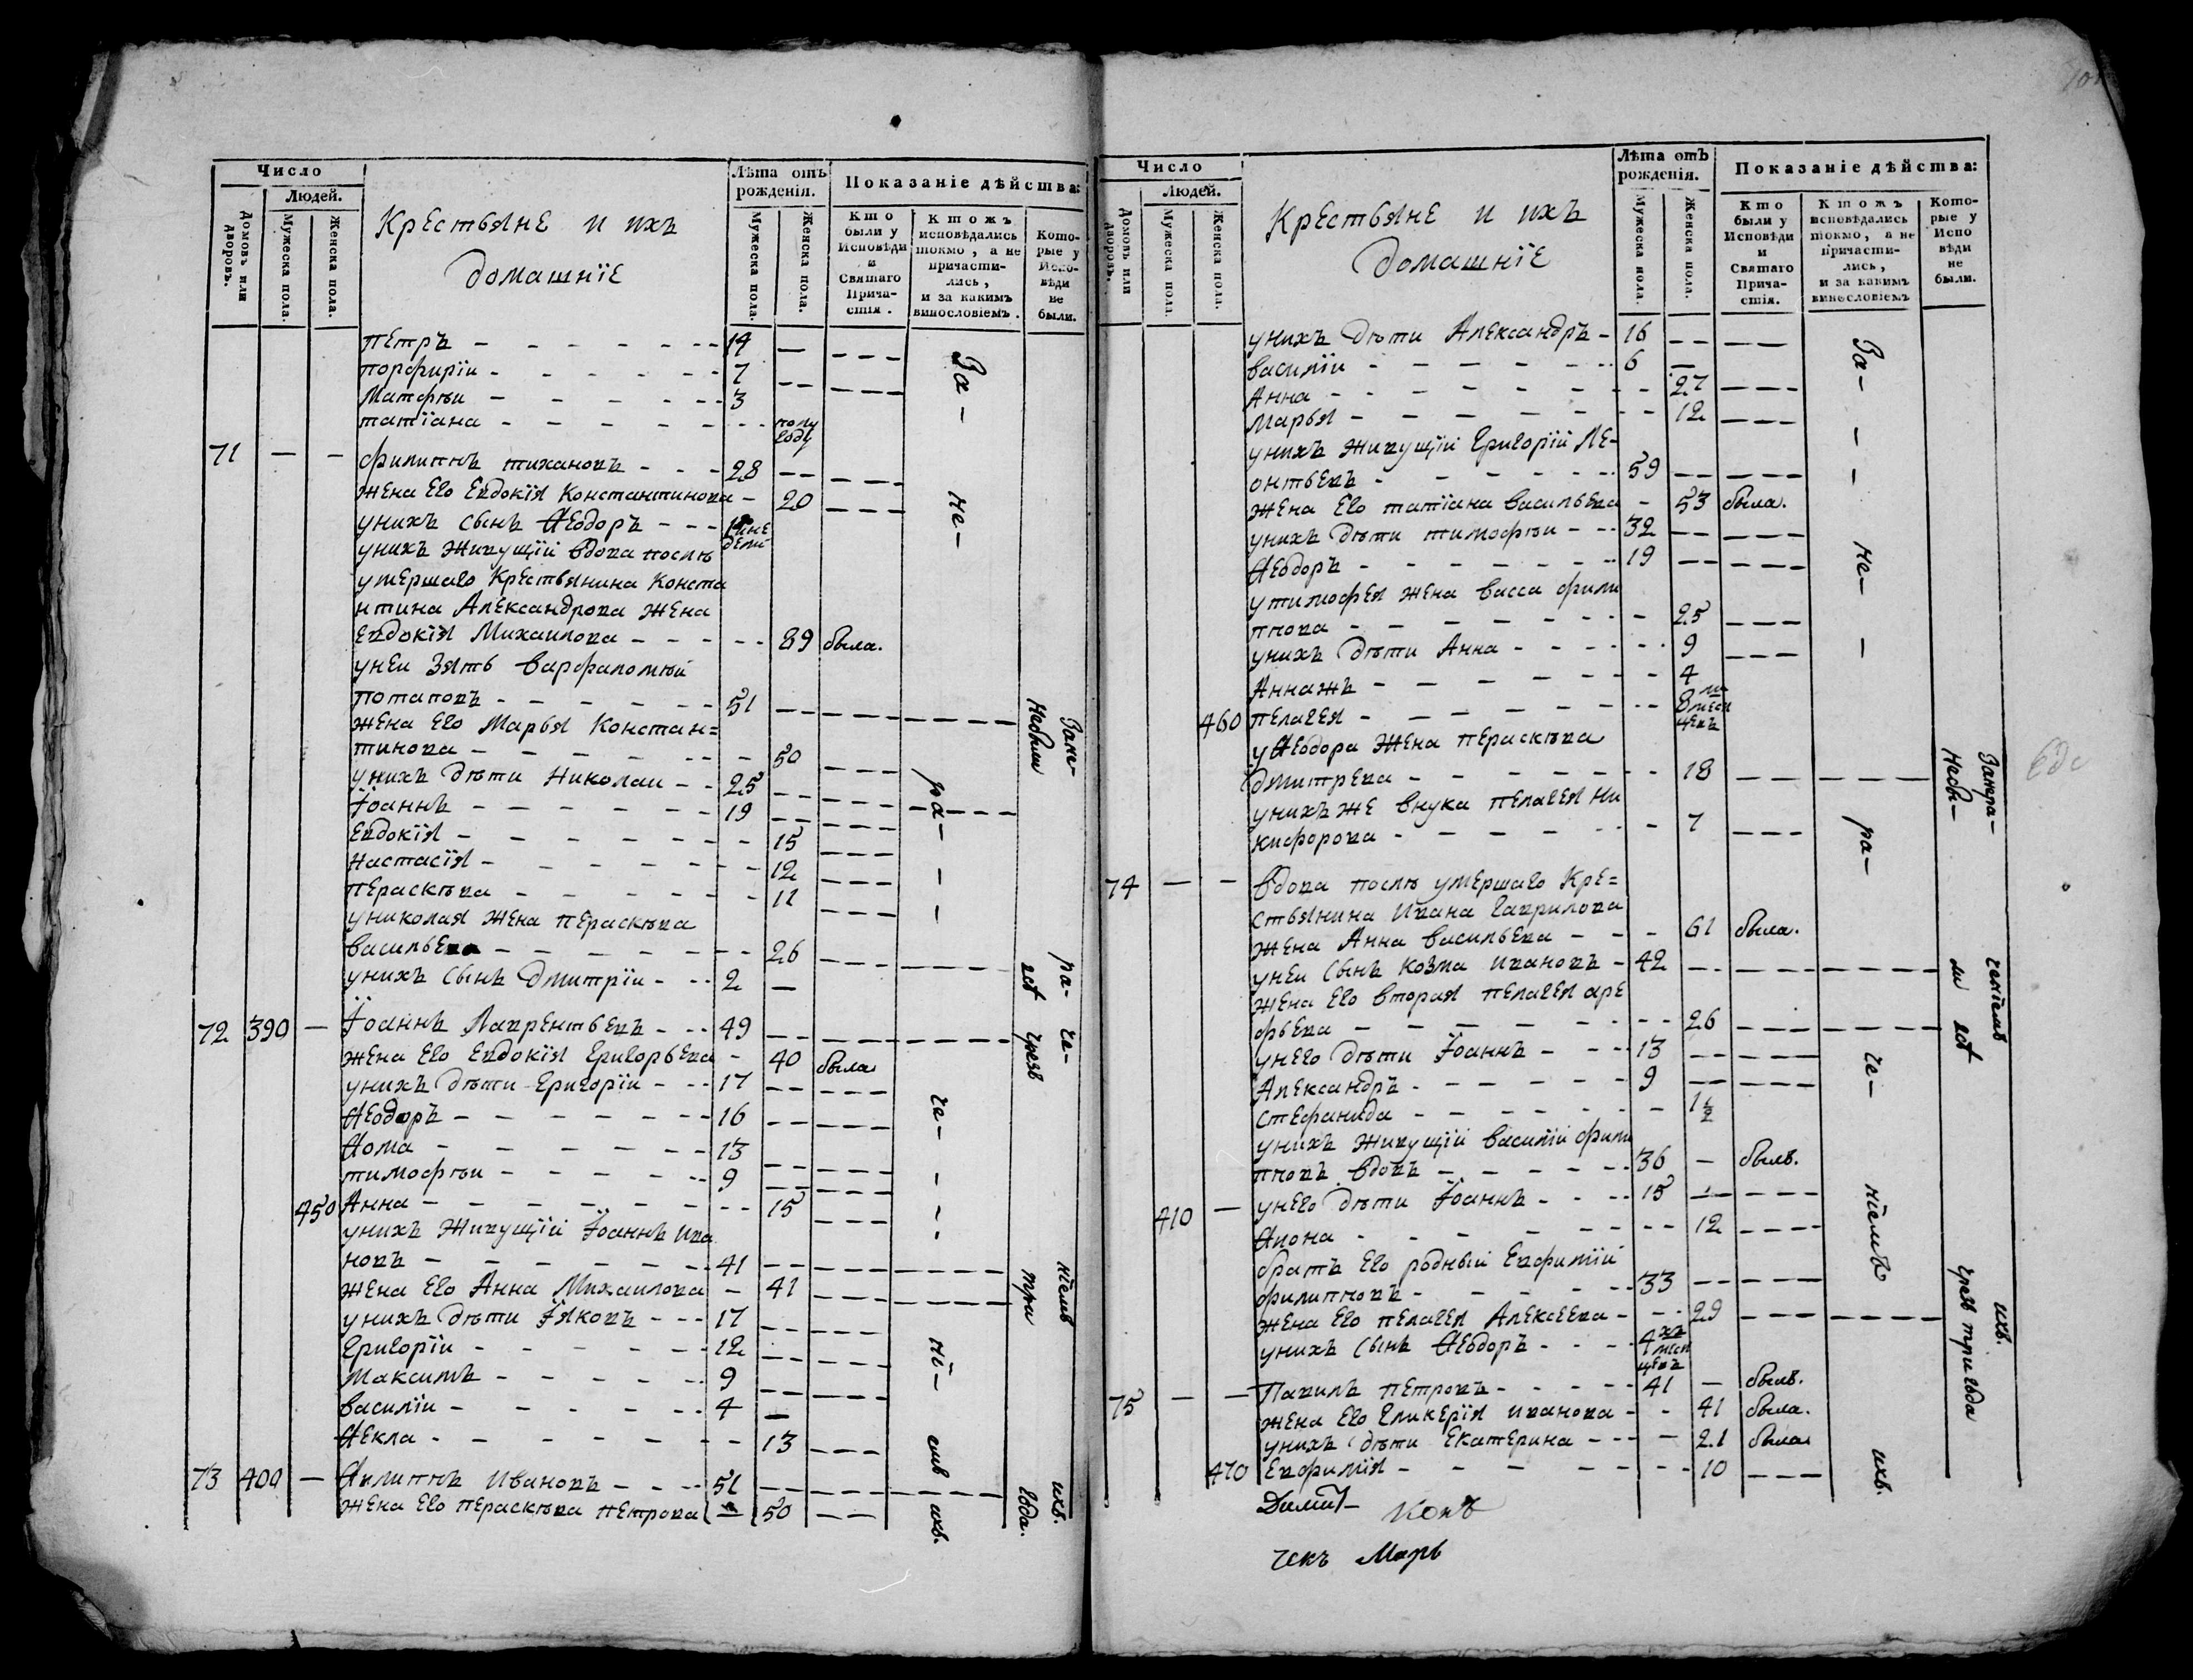 Число
Людей.
Домовъ или дворовъ.
Мужеска пола.
Женска пола.
Крестьяне и ихъ
домашнїе
Лѣта отъ рожденія.
Мужеска пола.
Женска пола.
Показаніе дѣйства:
Кто были у Исповѣди и Святаго Прича-стія.
Ктожъ исповѣдались токмо, а не причасти-лись, и за какимъ винословіемъ.
Кото-рые у Испо-вѣди не были.
Петръ - 14 -
порфирїи - 7
Матфѣи - 3
татїана - полу году
71 - - филиппъ тихановъ - 28
жена Его Евдокїя Константинова - 20
унихъ сынъ Ѳеодоръ -
унихъ живущїй вдова послѣ
умершаго Крестьянина Конста
нтина Александрова жена
Евдокїя Михаилова - 89 была.
унеи зять варфаломѣй
потаповъ - 51
жена Его Марья Констан=
тинова - 50
унихъ дѣти Николаи - 25
Їоаннъ - 19
Евдокїя - 15
Настасїя - 12
Пераскѣва - 11
униколая жена пераскѣва
васильева - 26
унихъ сынъ дмитрїи - 2 -
72 390 - Їоаннъ Лаврентьевъ - 49
жена Его Евдокїя Григорьева - 40 была
унихъ дѣти Григорїи - 17
Ѳеодоръ - 16
Ѳома - 13
тимофѣи - 9
450 Анна - 15
унихъ живущїй Їоаннъ Ива
новъ - 41
жена Его Анна Михаилова - 41
унихъ дѣти Їяковъ - 17
Григорїи - 12
Максимъ - 9
василїи - 4 -
Ѳекла - 13
73 400 - Ѳилиппъ Ивановъ - 51
жена Его пераскѣва петрова - 50
За - не - ра - че - нї - емъ ихъ.
Зане - ра - че - нїемъ ихъ.
небыли ест чрезъ три года.
Число
Людей.
Домовъ или дворовъ.
Мужеска пола.
Женска пола.
Крестьяне и ихъ
домашнїе
Лѣта отъ рожденія.
Мужеска пола.
Женска пола.
Показаніе дѣйства:
Кто были у Исповѣди и Святаго Прича-стія.
Ктожъ исповѣдались токмо, а не причасти-лись, и за какимъ винословіемъ
Кото-рые у Испо вѣди не были.
унихъ дѣти Александръ - 16
василїи - 6 -
Анна - 27
Марья - 12
унихъ живущїй Григорїй Ле-
онтьевъ - 59
жена Его татїана васильева - 53 была.
унихъ дѣти тимофѣи - 32
Ѳеодоръ - 19
утимофея жена васса фили
ппова - 25
унихъ дѣти Анна - 9
Аннажъ - 4
460 пелагея - 8 ми месяцевъ
уѲеодора жена пераскѣва
дмитрева - 18
унихъ же внука пелагея Ни
кифорова - 7
74 - - вдова послѣ умершаго Кре=
стьянина Ивана Гаврилова
жена Анна васильева - 61 была.
унеи сынъ козма ивановъ - 42
жена Его вторая пелагея аре
фьева - 26
унего дѣти Їоаннъ - 13
Александръ - 9
стефанида - 1½
унихъ живущїй василїй фили
пповъ вдовъ - 36 - былъ.
410 - унего дѣти Їоаннъ - 15
- 12
братъ Его родный Евфимїй
филипповъ - 33
жена Его пелагея Алексеева - 29
унихъ сынъ Ѳеодоръ - 4 хъ месяцевъ
75 - - Павилъ петровъ - 41 - былъ.
жена Его гликерїя иванова - 41 была.
унихъ дѣти Екатерина - 21 была
470 Евфимїя - 10
За - не - ра - че - нїемъ ихъ.
Занера - ченїемъ ихъ.
Небы - ли ест чрезъ три года